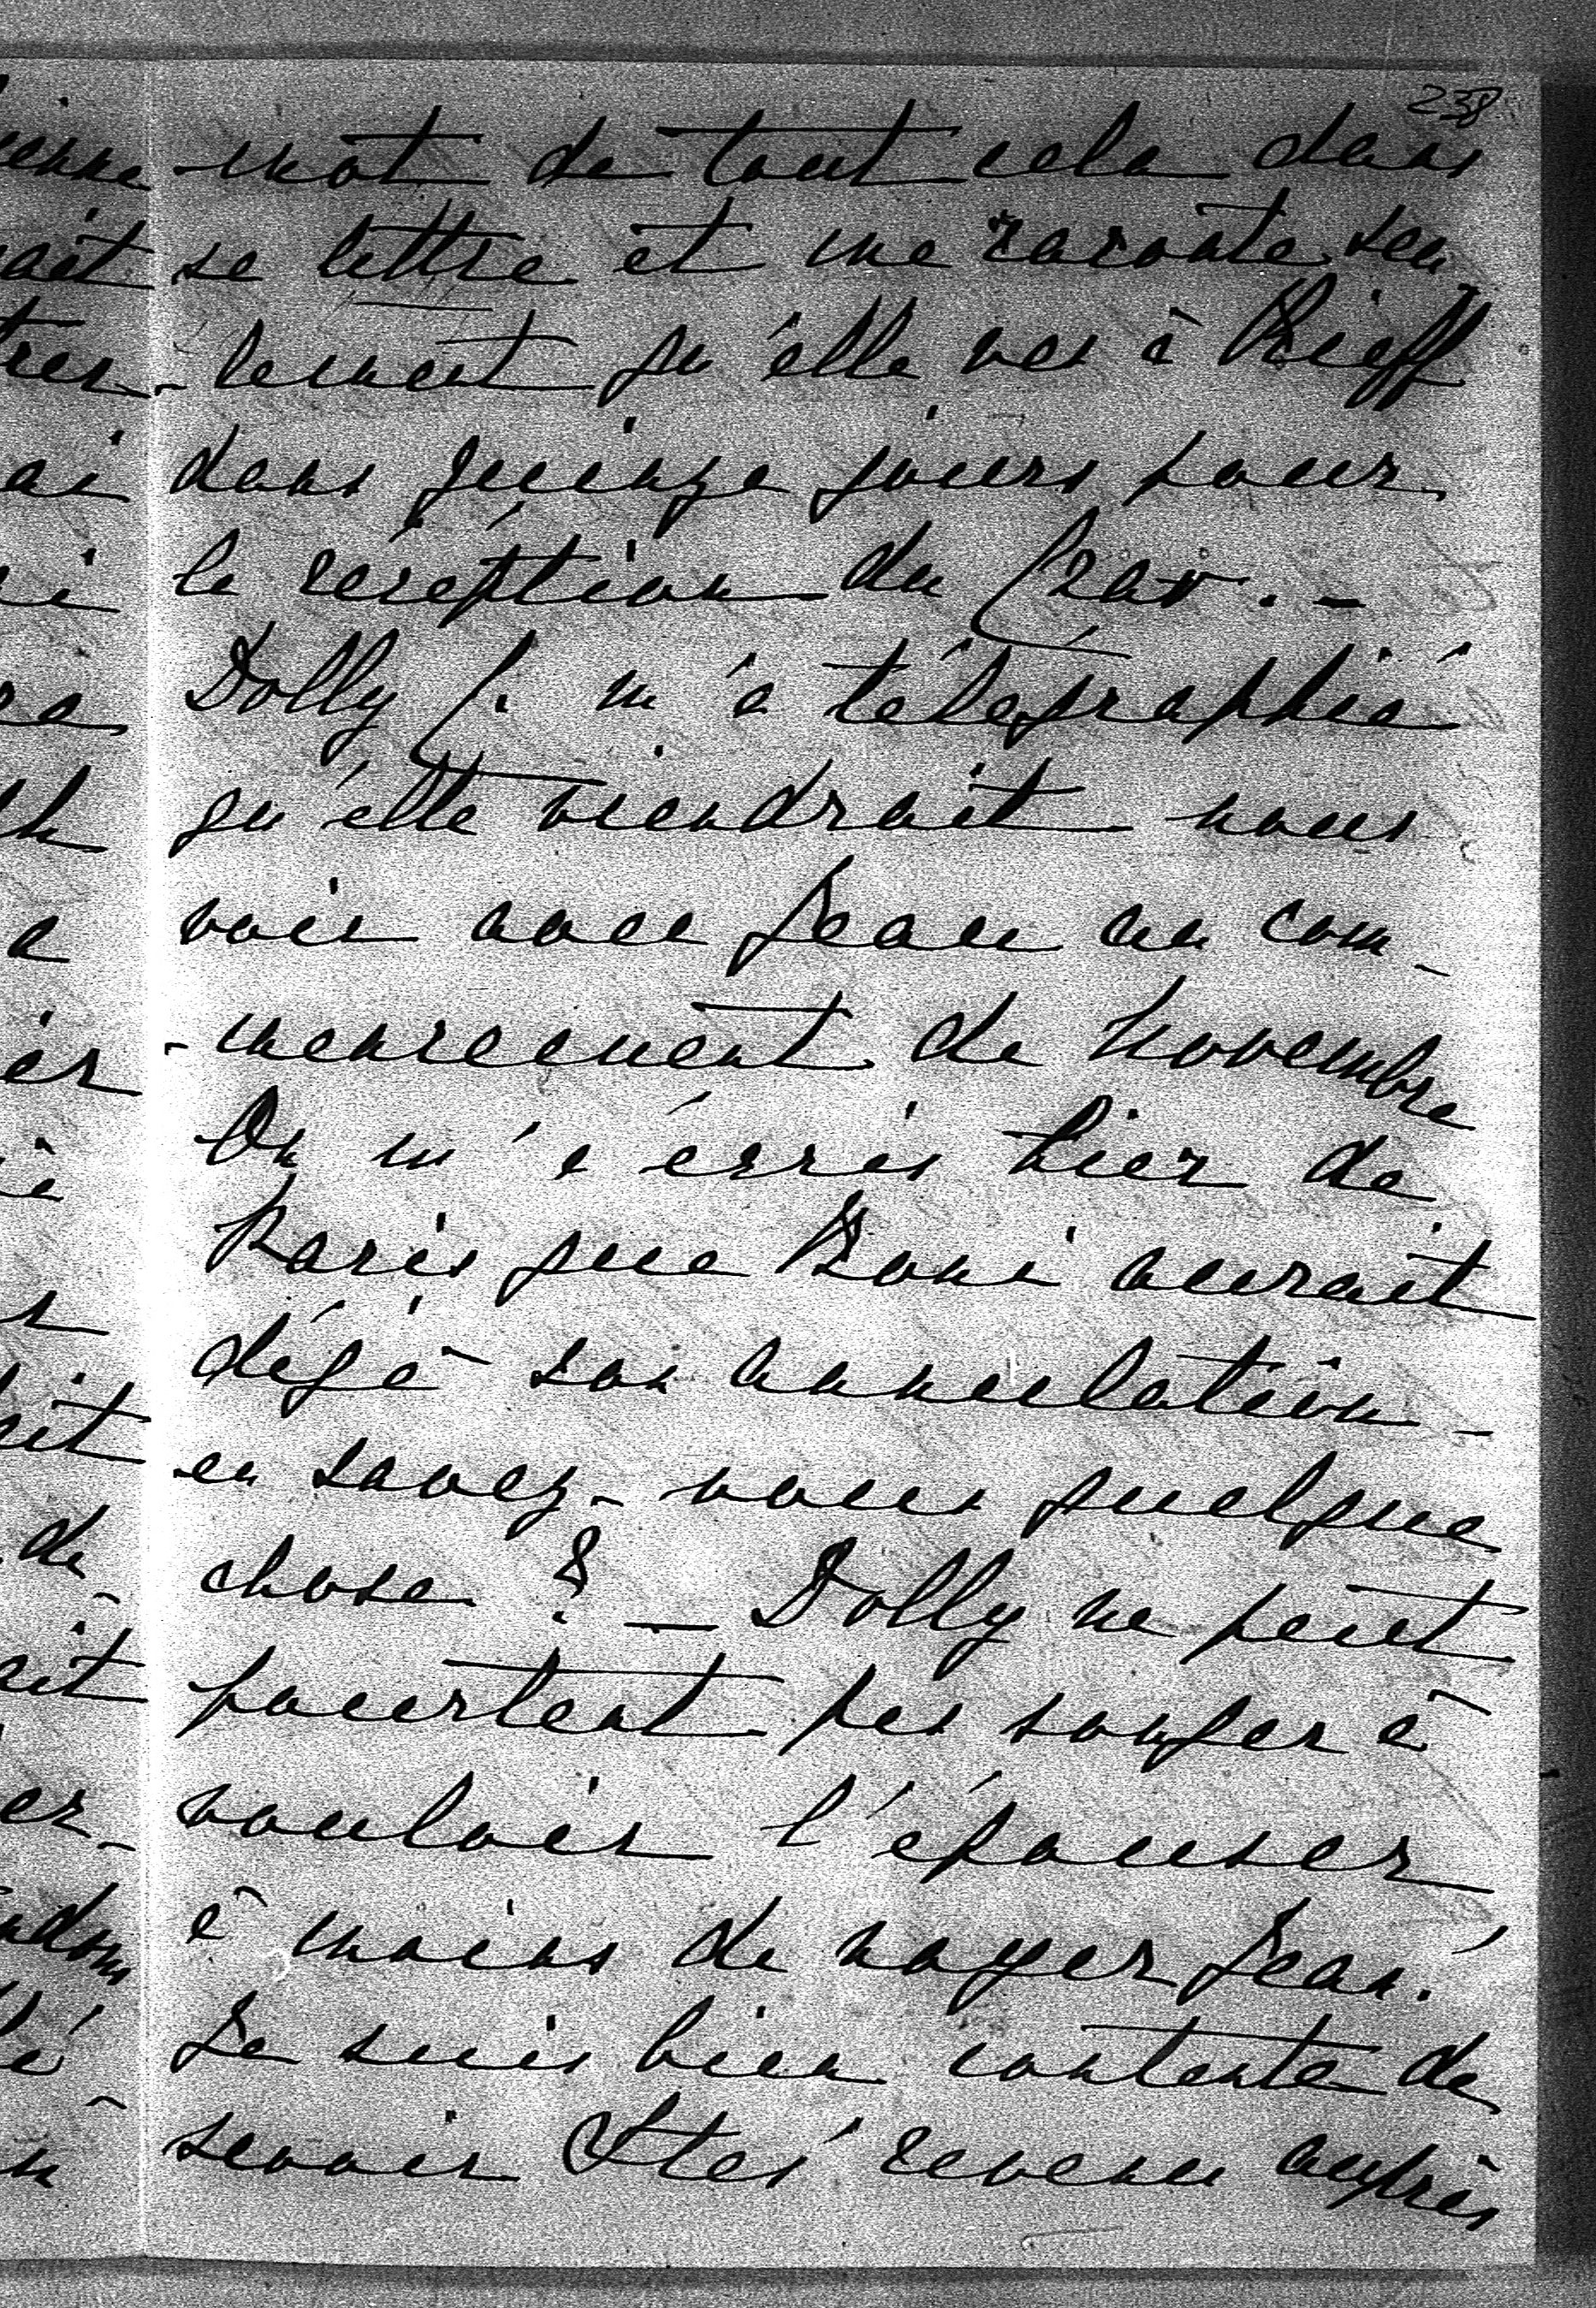 238
mot de tout cela dans
sa lettre et me raconte seu-
-lement qu'elle va à Kieff
dans quinze jours pour
la réception du Czar. -
Dolly C. m'a télégraphié
qu'elle viendrait nous
voir avec Jean au com-
-mencement de Novembre
On m'a écris hier de
Paris que Boni aurait
déjà son annulation -
en savez-vous quelque
chose ? - Dolly ne peut
pourtant pas songer à
vouloir l'épouser
à moins de noyer Jean!
Je suis bien contente de
savoir revenu auprès